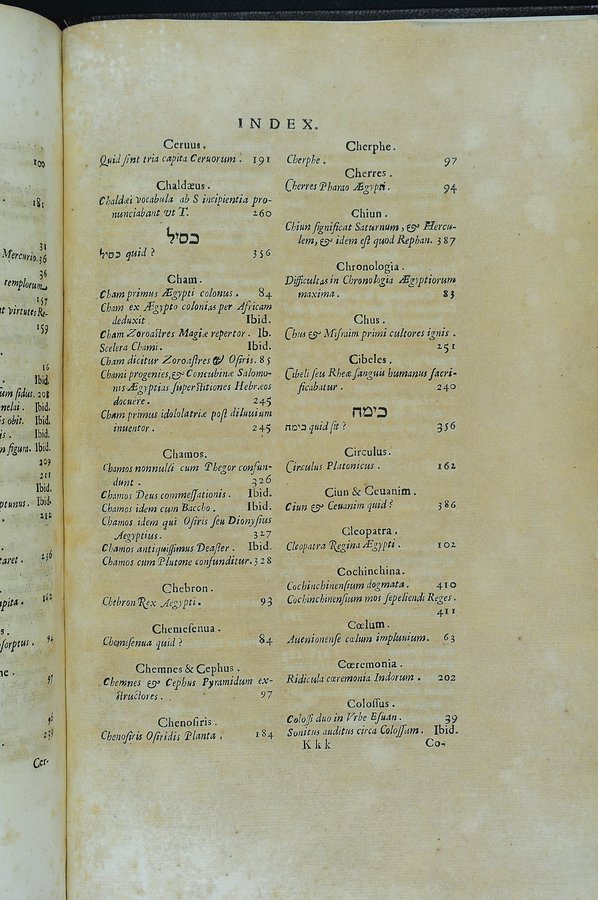 100
181
31
Mercurio. 36
36
templorum
157
t virtute; Re-
159
16
Ibid.
um sidus. 208
nelai. Ibid.
is obit. Ibid.
is. Ibid.
n figura. Ibid.
209
211
Ibid.
ptunus. Ibid.
212
taret. 236
apita. 162
s.
sorptus. 94
ne.
97
98
238
Cer-
INDEX.
Ceruus.
Quid sint tria capita Ceruorum. 191
Chaldæus.
Chaldæi vocabula ab S incipientia pro-
nunciabant vt T. 260
כסיל
כסיל quid? 356
Cham.
Cham primus Ægypti colonus. 84
Cham ex Ægypto colonias per Africam
deduxit. Ibid.
Cham Zoroastres Magiæ repertor. Ib.
Scelera Chami. Ibid.
Cham dicitur Zoroastres & Osiris. 85
Chami progenies, & Concubinæ Salomo-
nis Ægyptias superstitiones Hebræos
docuere. 245
Cham primus idololatriæ post diluuium
inuentor. 245
Chamos.
Chamos nonnulli cum Phegor confun-
dunt. 326
Chamos Deus commessationis. Ibid.
Chamos idem cum Baccho. Ibid.
Chamos idem qui Osiris seu Dionysius
Aegyptius. 327
Chamos antiquissimus Deaster. Ibid.
Chamos cum Plutone confunditur. 328
Chebron.
Chebron Rex Aegypti. 93
Chemesenua.
Chemisenua quid? 84
Chemnes & Cephus.
Chemnes & Cephus Pyramidum ex-
structores. 97
Chenosiris.
Chenosiris Osiridis Planta. 184
Cherphe.
Cherphe. 97
Cherres.
Cherres Pharao Ægypti. 94
Chiun.
Chiun significat Saturnum, & Hercu-
lem, & idem est quod Rephan. 387
Chronologia.
Difficultas in Chronologia Ægyptiorum
maxima. 83
Chus.
Chus & Misraim primi cultores ignis.
251
Cibeles.
Cibeli seu Rheæ sanguis humanus sacri-
ficabatur. 240
כימה
כימה quid sit? 356
Circulus.
Circulus Platonicus. 162
Ciun & Ceuanim.
Ciun & Ceuanim quid? 386
Cleopatra.
Cleopatra Regina Ægypti. 102
Cochinchina.
Cochinchinensium dogmata. 410
Cochinchinensium mos sepeliendi Reges.
411
Cœlum.
Auenionense cœlum impluuium. 63
Cœremonia.
Ridicula cœremonia Indorum. 202
Colossus.
Colossi duo in Vrbe Esuan. 39
Sonitus auditus circa Colossum. Ibid.
Kkk Co-